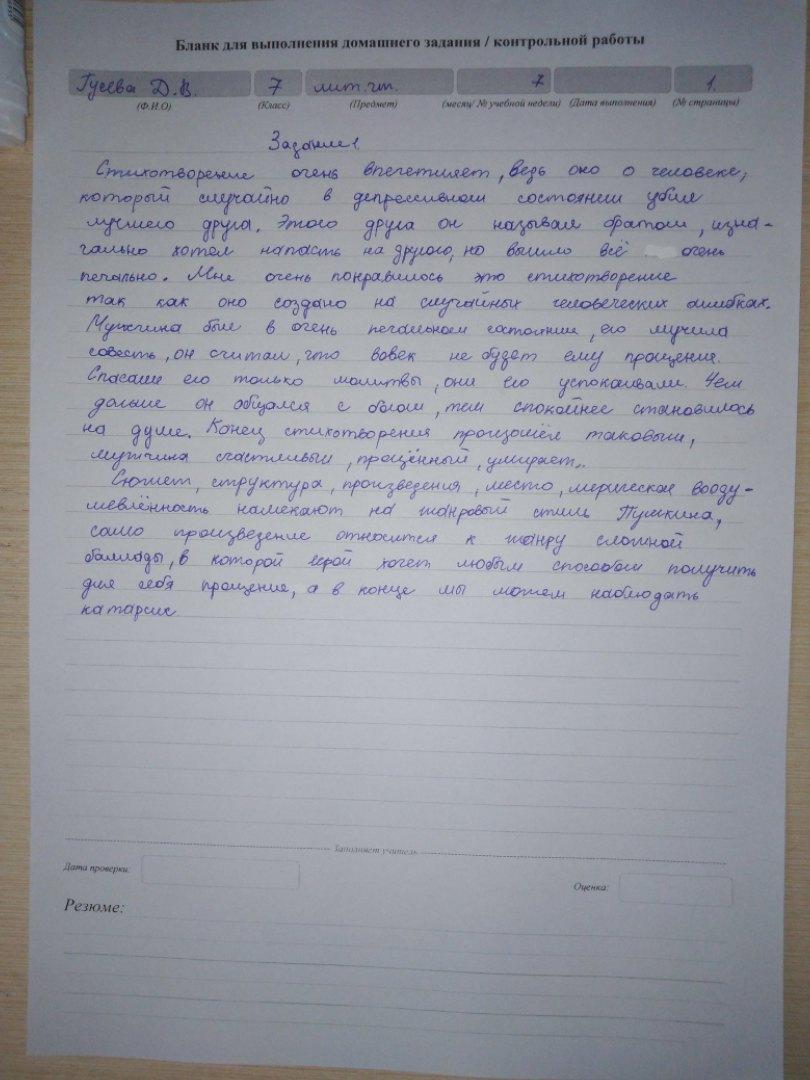 Бланк для выполнения домашнего задания / контрольной работы
Гусева Д.В. 7 лит.чт. 7 1.
(Ф.И.О) (Класс) (Предмет) (месяц/ № учебной недели) (Дата выполнения) (№ страницы)
Задание 1.
Стихотворение очень впечетляет, ведь оно о человеке,
который случайно в депрессивном состоянии убил
лучшего друга. Этого друга он называл братом, изна-
чально хотел напасть на другого, но вышло всё очень
печально. Мне очень понравилось это стихотворение
так как оно создано на случайных человеческих ошибках.
Мужчина был в очень печальном состоянии, его мучила
совесть, он считал, что вовек не будет ему прощения.
Спасали его только молитвы, они его успокаивали. Чем
дольше он общался с богом, тем спокойнее становилось
на душе. Конец стихотворения произошёл таковым,
мужчина счастливый, прощённый, умирает..
Сюжет, структура, произведения, место, лирическая вооду-
шевлённость намекают на жанровый стиль Пушкина,
само произведение относится к жанру сложной
баллады, в которой герой хочет любым способом получить
для себя прощение, а в конце мы можем наблюдать
катарсис
Заполняет учитель
Дата проверки:
Оценка:
Резюме: